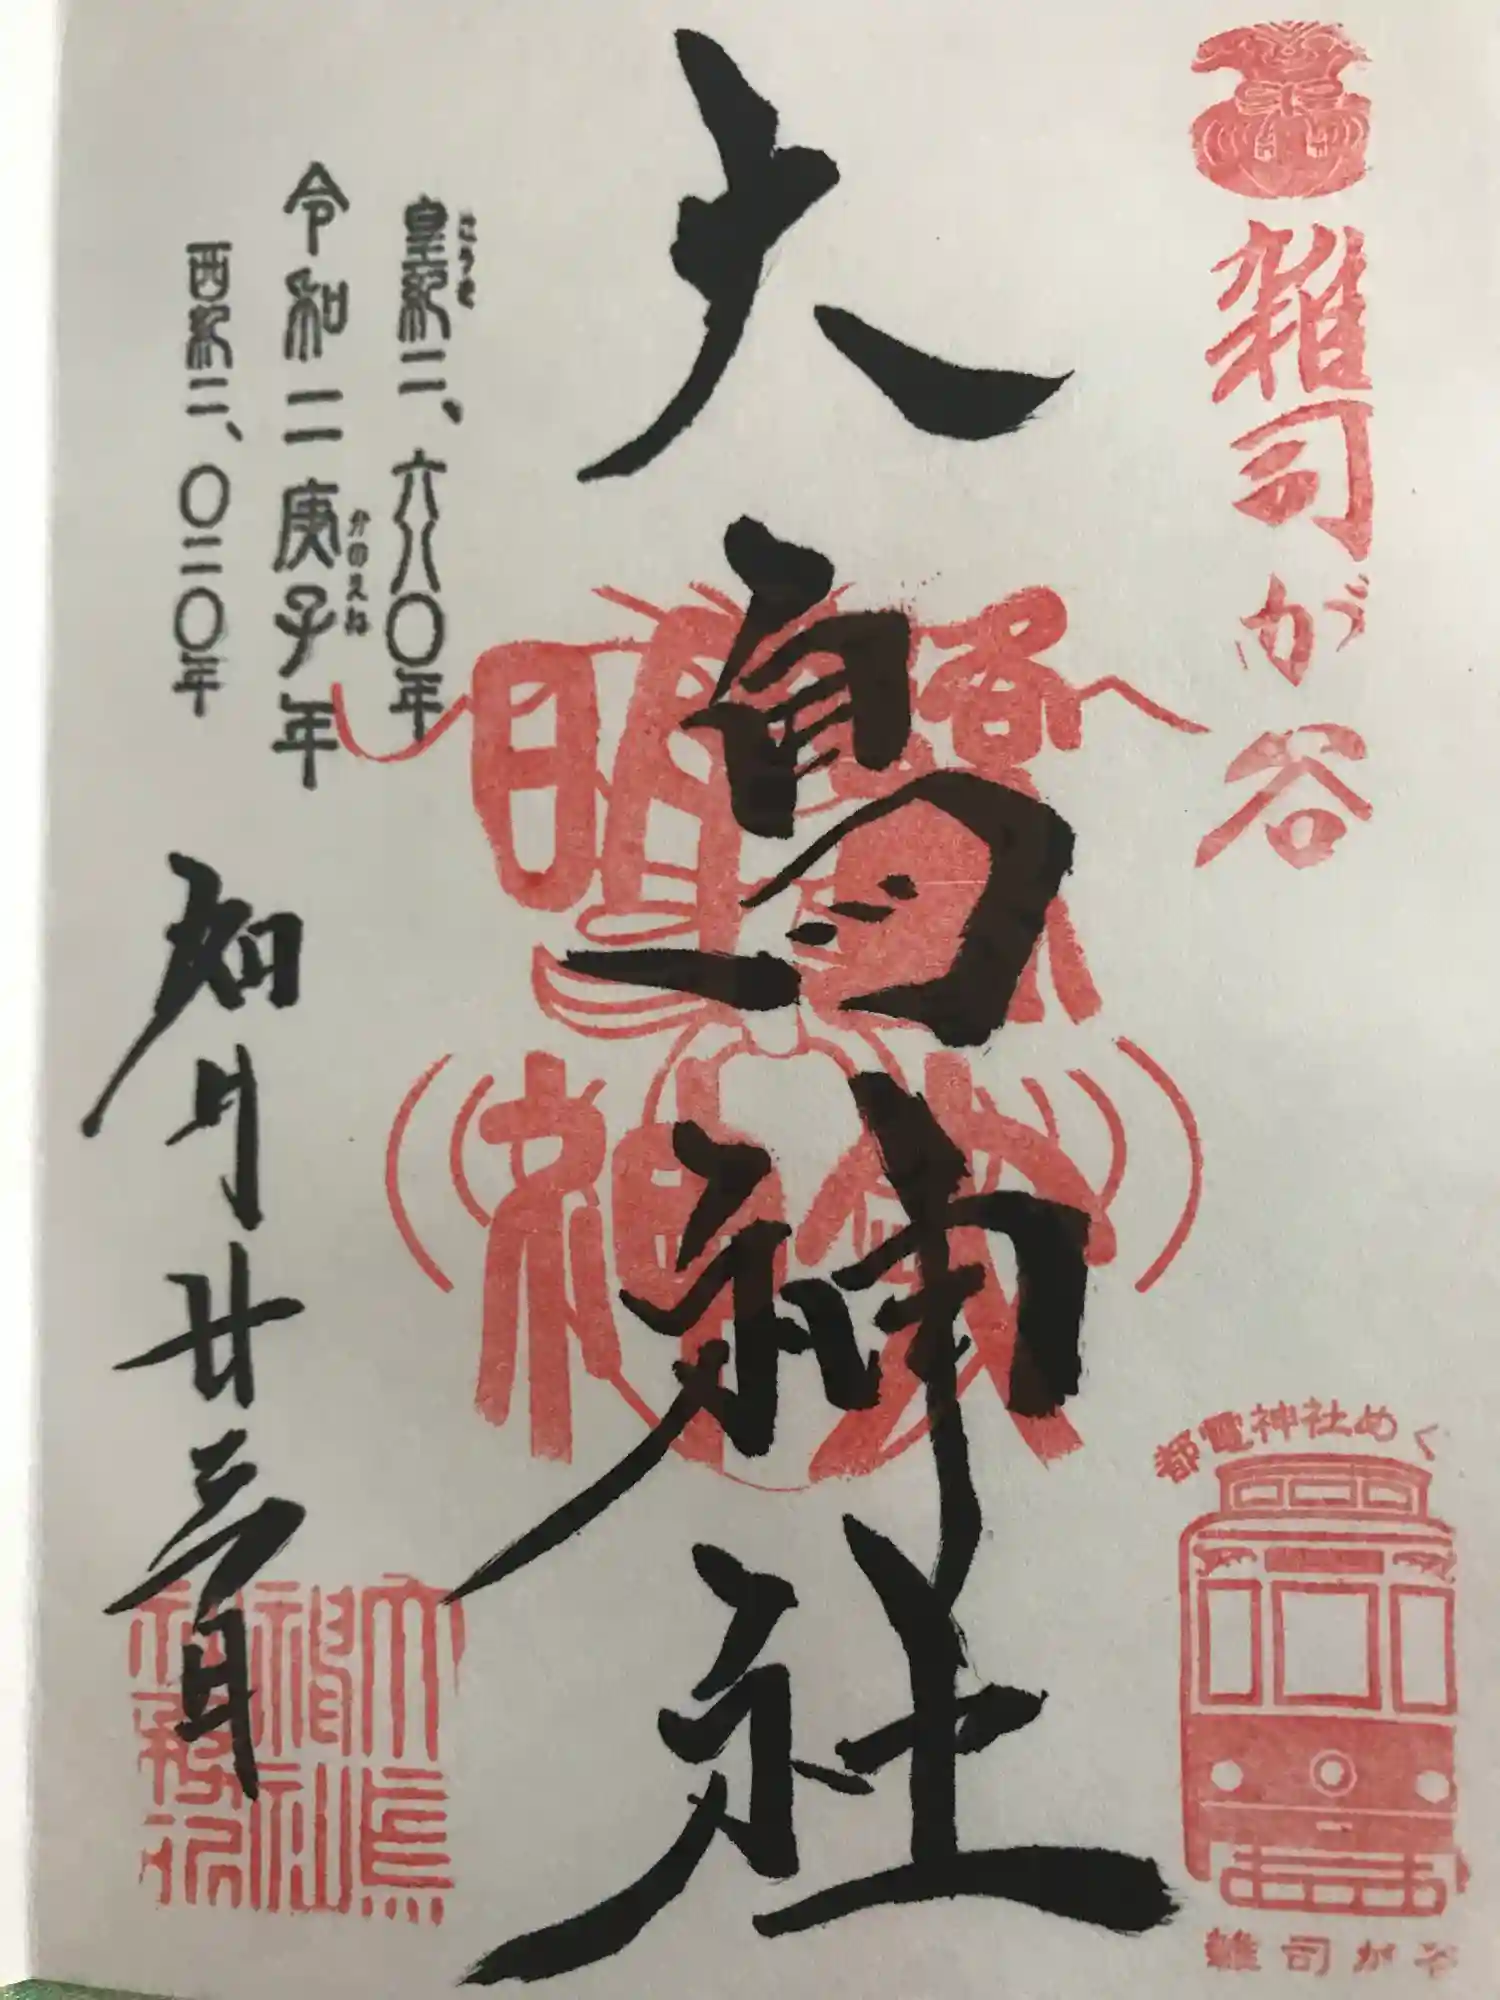 雑司が谷
大鳥神社
こうき
皇紀二、六八〇年
かのえね
令和二庚子年
西紀二、〇二〇年
如月廿三日
都電神社めぐ
雑司が谷